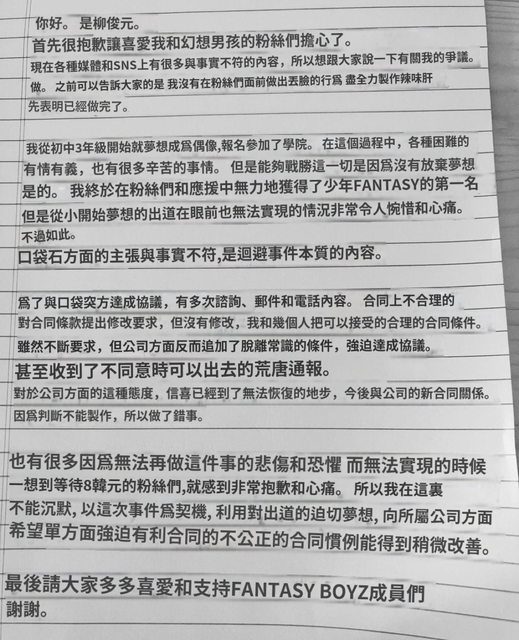 你好。 是柳俊元。
首先很抱歉讓喜愛我和幻想男孩的粉絲們擔心了。
現在各種媒體和SNS上有很多與事實不符的內容，所以想跟大家說一下有關我的爭議。
做。 之前可以告訴大家的是 我沒有在粉絲們面前做出丟臉的行爲 盡全力製作辣味肝
先表明已經做完了。
我從初中3年級開始就夢想成爲偶像,報名參加了學院。 在這個過程中，各種困難的
有情有義，也有很多辛苦的事情。 但是能夠戰勝這一切是因爲沒有放棄夢想
是的。 我終於在粉絲們和應援中無力地獲得了少年FANTASY的第一名
但是從小開始夢想的出道在眼前也無法實現的情況非常令人惋惜和心痛。
不過如此。
口袋石方面的主張與事實不符,是迴避事件本質的內容。
爲了與口袋突方達成協議，有多次諮詢、郵件和電話內容。 合同上不合理的
對合同條款提出修改要求，但沒有修改，我和幾個人把可以接受的合理的合同條件。
雖然不斷要求，但公司方面反而追加了脫離常識的條件，強迫達成協議。
甚至收到了不同意時可以出去的荒唐通報。
對於公司方面的這種態度，信喜已經到了無法恢復的地步，今後與公司的新合同關係。
因爲判斷不能製作，所以做了錯事。
也有很多因爲無法再做這件事的悲傷和恐懼 而無法實現的時候
一想到等待8韓元的粉絲們,就感到非常抱歉和心痛。 所以我在這裏
不能沉默, 以這次事件爲契機, 利用對出道的迫切夢想, 向所屬公司方面
希望單方面強迫有利合同的不公正的合同慣例能得到稍微改善。
最後請大家多多喜愛和支持FANTASY BOYZ成員們
謝謝。